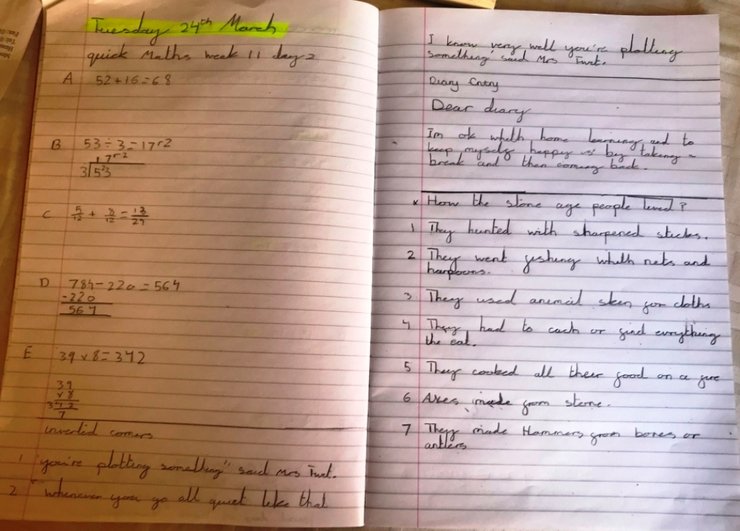 Tuesday 24th March
quick Maths week 11 day 2
A 52+16=68
B 53÷3=17r2
17r2
3|53
C 5/12 + 8/12 = 13/24
D 784-220=564
-220
564
E 39x8=312
39
x8
312
7
inverted comers
1 "you're plotting something" said Mrs Twit.
2 "whenever you go all quiet like that
I know very well you're plotting
something said Mrs Twit.
Diary Entry
Dear diary
Im ok whith home learning and to
keep myself happy is by takeing a
break and then coming back.
x How the stone age people lived?
1 They hunted with sharpened sticks.
2 They went fishing whith nets and
harpoons.
3 They used animal sken for cloths
4 They had to cach or find evrything
the eat.
5 They cooked all their food on a fire
6 Axes made from stone.
7 They made Hammers from bones or
antlers